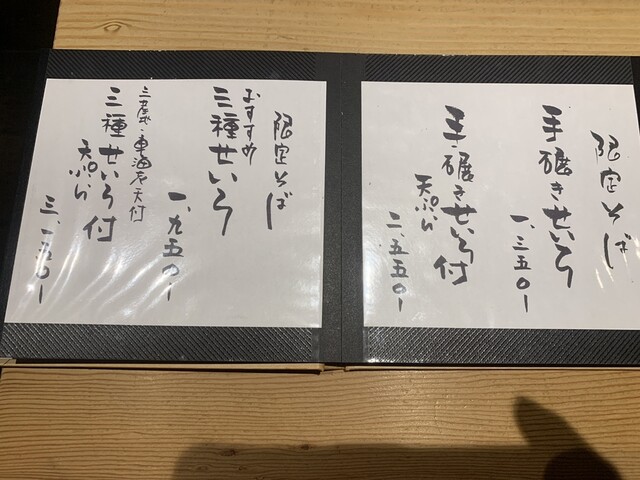 限定そば
手碾きせいろ
一、三五〇ー
手碾きせいろ
天ぷら付
二、五五〇ー
限定そば
おすすめ
三種せいろ
一、九五〇ー
三種せいろ
天ぷら付
三、一五〇ー